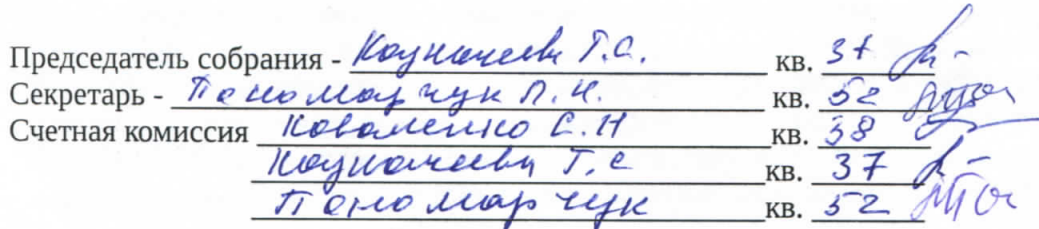 Председатель собрания - Казначеева Т.С. кв. 37
Секретарь - Пономарчук Л.Н. кв. 52
Счетная комиссия Коваленко С.Н кв. 38
Казначеева Т.С кв. 37
Пономарчук кв. 52